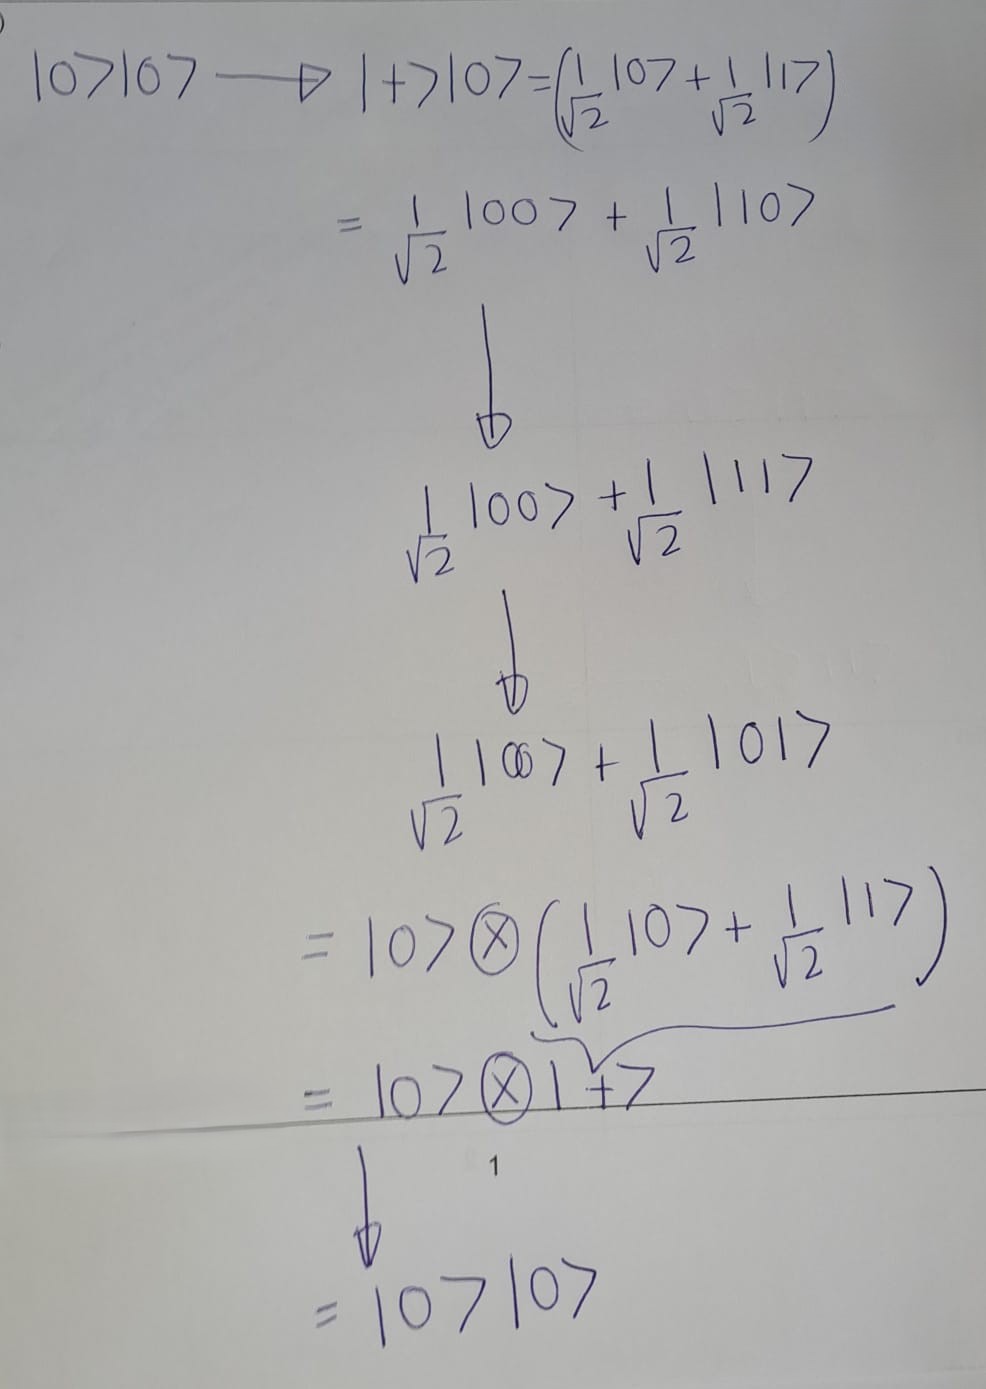 )
|0>|0> → |+>|0> = (1/√2 |0> + 1/√2 |1>)
= 1/√2 |00> + 1/√2 |10>
↓
1/√2 |00> + 1/√2 |11>
↓
1/√2 |00> + 1/√2 |01>
= |0> ⊗ (1/√2 |0> + 1/√2 |1>)
= |0> ⊗ |+>
1
↓
= |0> |0>